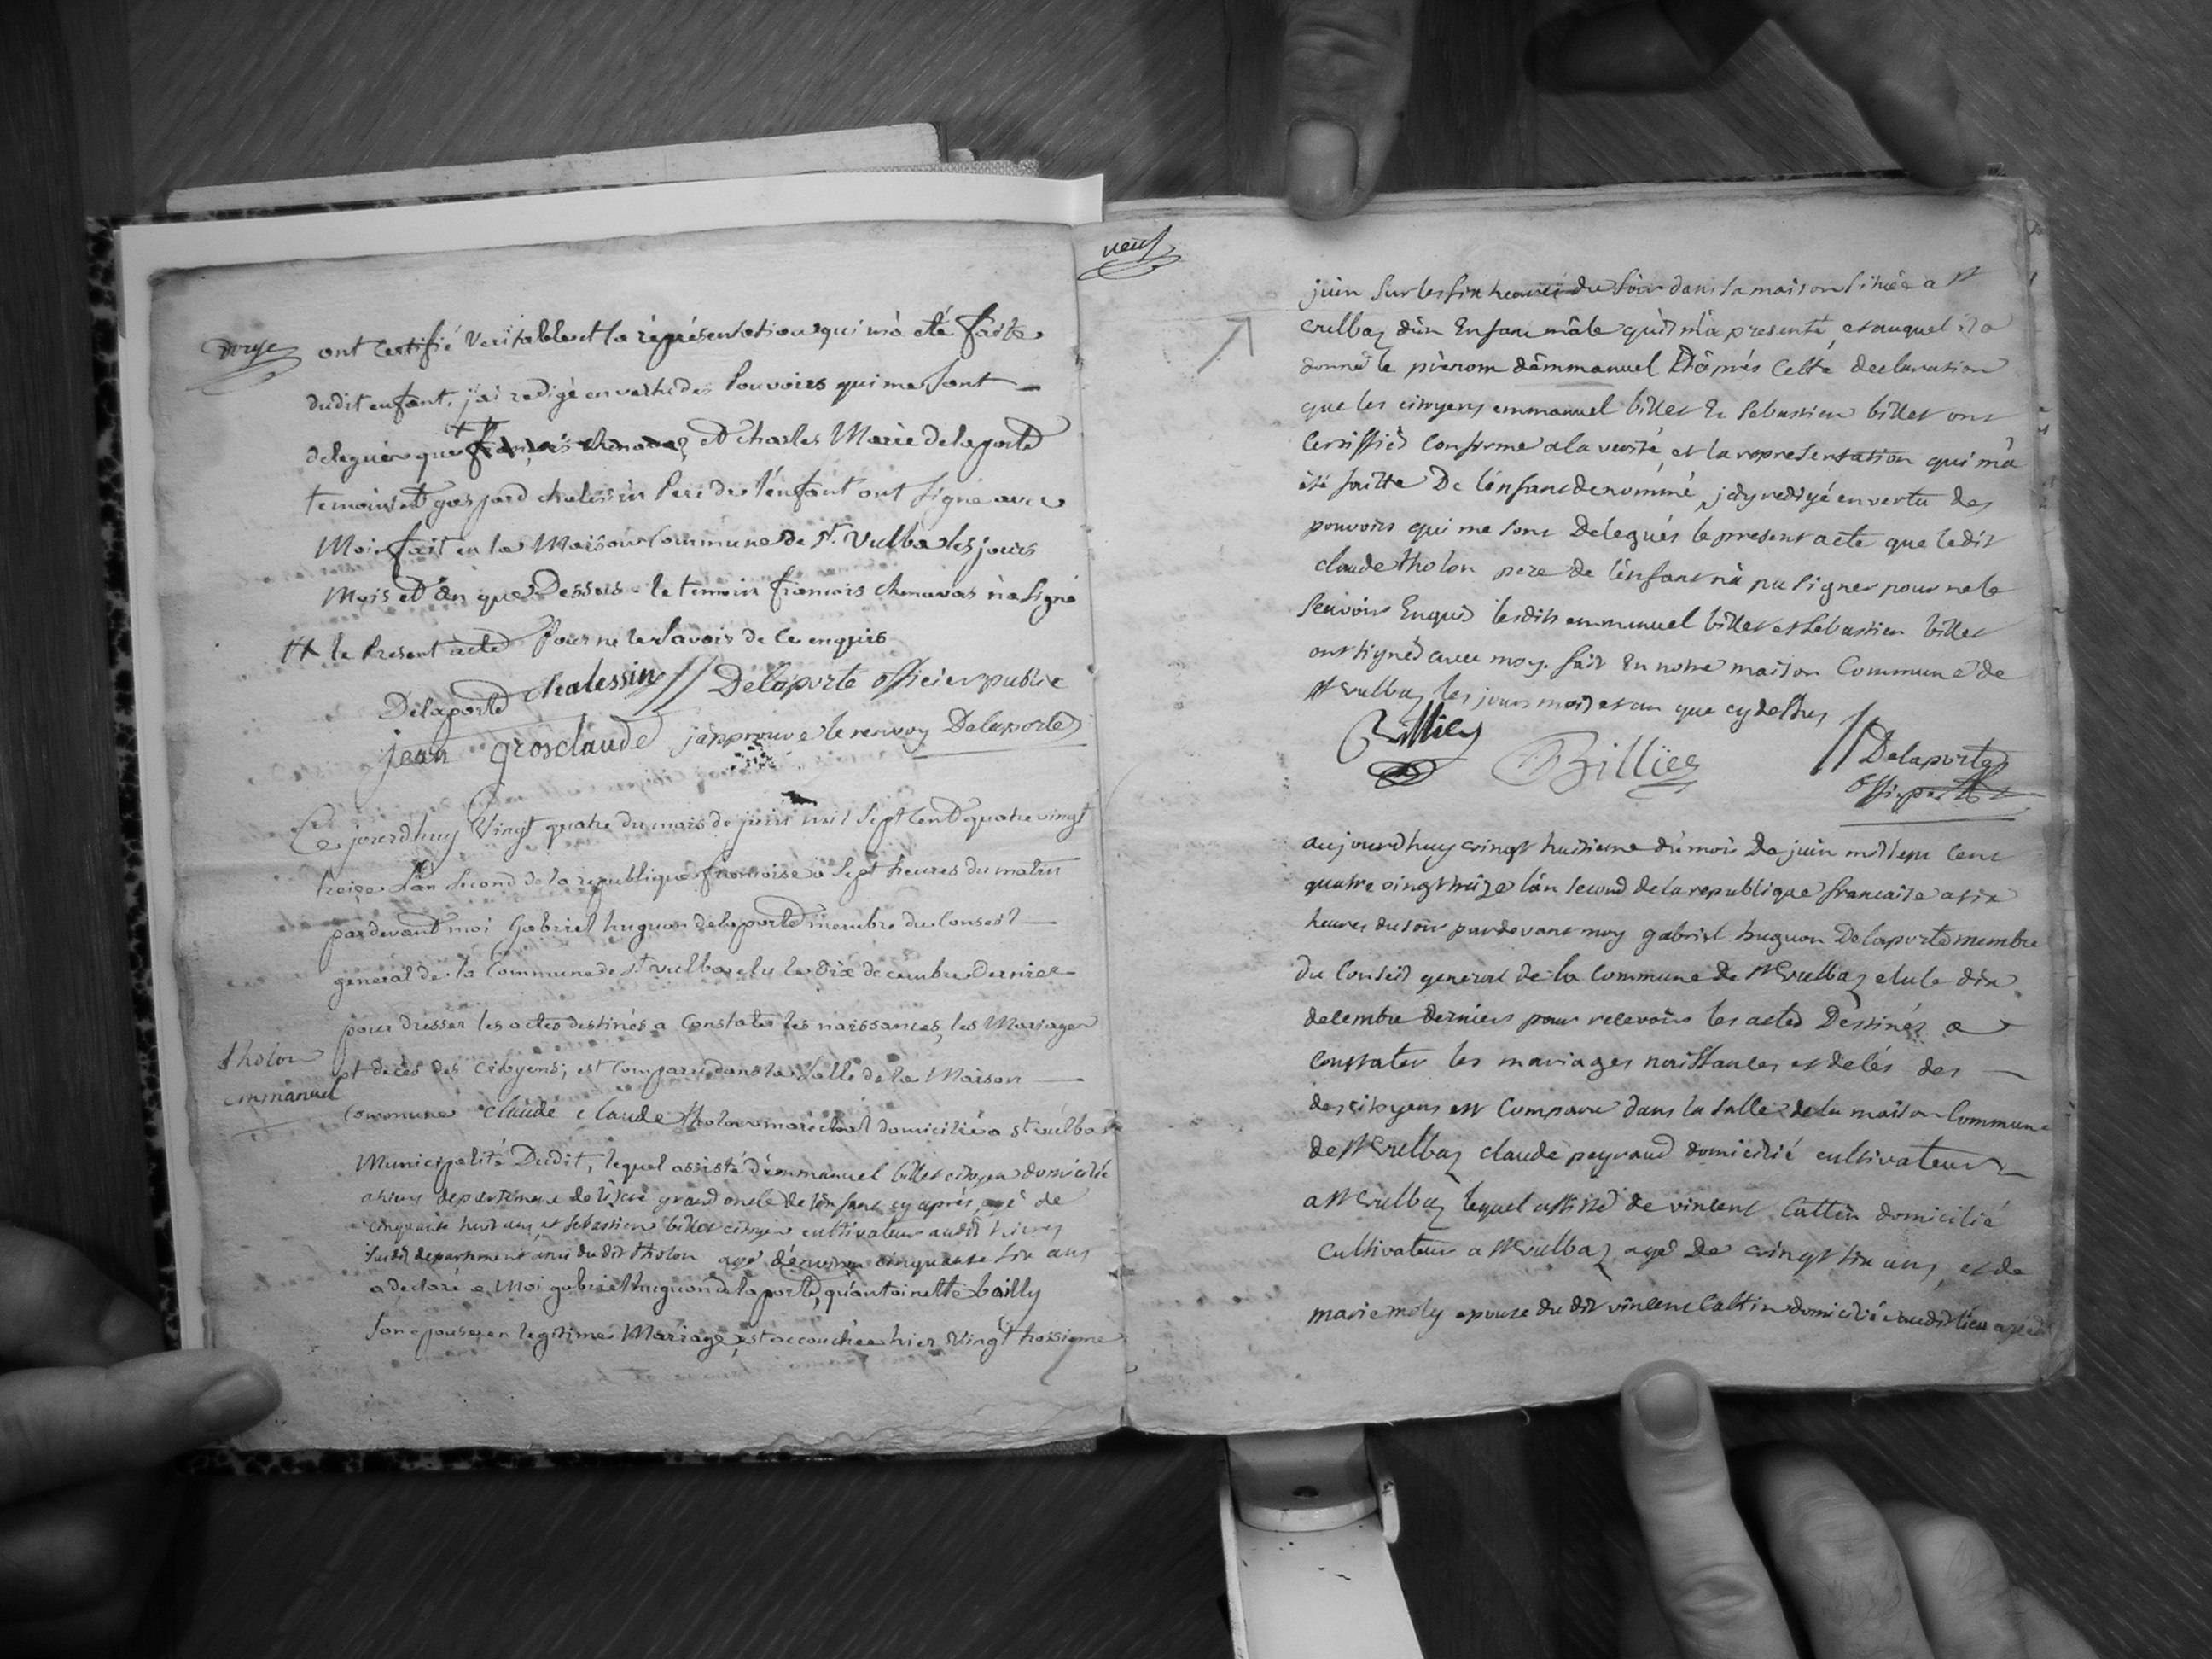 ont Certifié Veritable et la réprésentation qui m'a eté faite
dudit enfant, j'ai redigé en vertu des Pouvoirs qui me sont
delegués que et Charles Marie delaporte
temoins et gaspard chalessin Pere de l'enfant ont signé avec
Moi. fait en la Maison Commune de St. Vulba les jours
Mois et an que Dessus. le temoin francois chenavas n'a signé
H le Present acte Pour ne le savoir de ce enquis
Delaporte chalessin // Delaporte officier public
jean grosclaude j'approuve le renvoy Delaporte
Ce jourd'huy Vingt quatre du mois de juin mil sept Cent quatre vingt
treize L'an second de la republique francoise a sept heures du matin
par devant moi Gabriel huguon delaporte membre du Conseil
general de la Commune de St vulba elu le dix decembre dernier
pour dresser les actes destinés a Constater les naissances, les Mariages
tholon
et decès des Citoyens; est Comparu dans la Salle de la Maison
emmanuel
Commune claude claude tholon marechal domicilié a st vulba
Municipalité Dudit, lequel assisté d'emmanuel billet citoyen domicilié
a hieres departement de l'isere grand oncle de l'enfant cy après, agé de
cinquante huit ans, et sebastien billet citoyen cultivateur audit hieres
susdit departement ami du dit tholon agé d'environ cinquante six ans
a declaré a Moi gabriel huguon delaporte, qu'antoinette bailly
son epouse en legitime Mariage, est accouchée hier vingt troisieme
neuf
juin sur les six heures du soir dans sa maison située a st
vulbaz d'un Enfant mâle qu'il m'a presenté, et auquel il a
donné le prénom d'emmanuel D'après Cette declaration
que les citoyens emmanuel billet Et Sebastien billet ont
Certiffiés Conforme a la verité, et la representation qui m'a
été faitte De l'enfant denommé, j'ay redigé en vertu des
pouvoirs qui me sont Delegués le present acte que ledit
claude tholon pere de l'enfant n'a pu signer pour ne le
scavoir Enquis lesdits emmanuel billet et Sebastien billet
ont signés avec moy. fait En notre maison Commune de
st vulbaz les jours mois et an que cy dessus
Billiey Billiee // Delaporte
aujourdhuy vingt huitieme du mois De juin mil sept Cent
quatre vingt treize l'an second de la republique francaise a six
heures du soir pardevant moy gabriel huguon Delaporte membre
du Conseil general de la Commune de st vulbaz elu le dix
decembre derniers pour recevoirs les actes Dessinés a
Constater les mariages naissances et decés des
des citoyens est Comparu dans la salle de la maison Commune
de st vulbaz claude peyraud domicilié cultivateur
a st vulbaz lequel assisté de vincent Cattin domicilié
cultivateur a st vulbaz agé De vingt six ans, et de
marie moly epouze du dit vincent Cattin domiciliée audit lieu agée